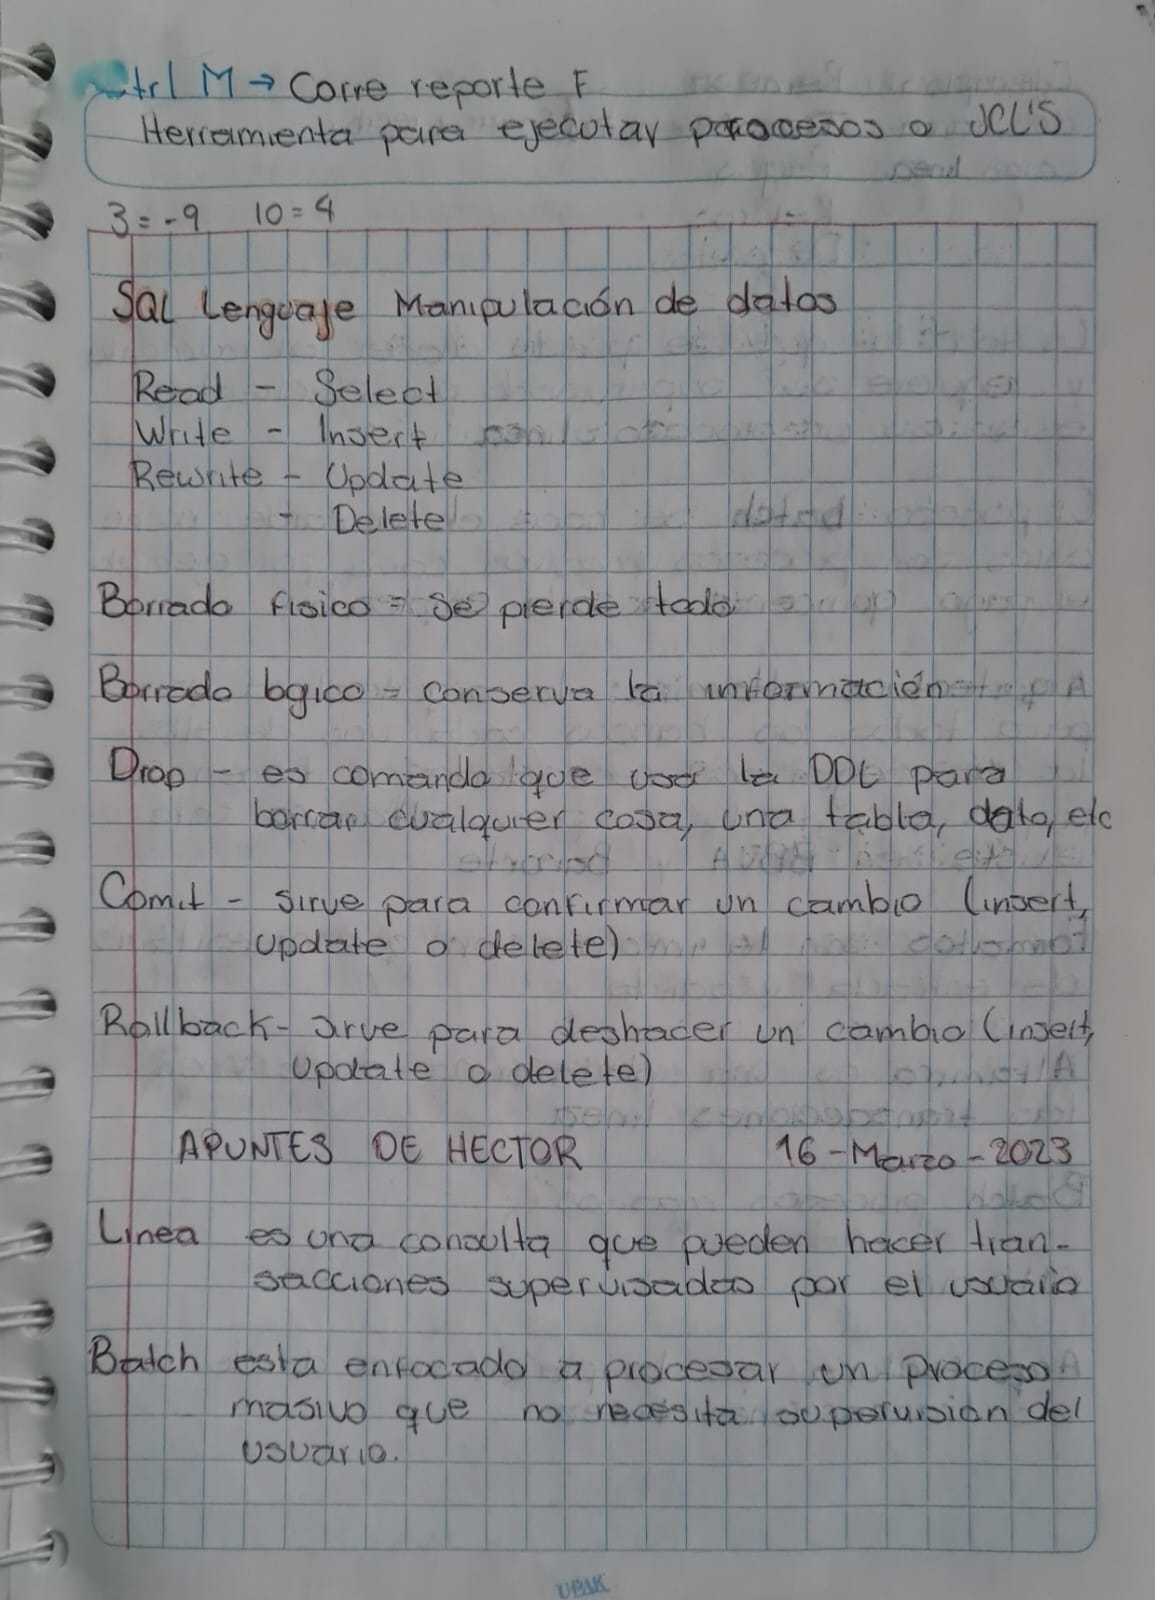 Ctrl M → Corre reporte F
Herramienta para ejecutar procesos o JCL'S
3 = -9 10 = 4
SQL Lenguaje Manipulación de datos
Read - Select
Write - Insert
Rewrite - Update
- Delete
Borrado fisico = Se pierde todo
Borrado logico = conserva la información
Drop - es comando que usa la DDL para
borrar cualquier cosa, una tabla, dato, etc
Comit - sirve para confirmar un cambio (insert,
update o delete)
Rollback - sirve para deshacer un cambio (insert,
update o delete)
APUNTES DE HECTOR 16 - Marzo - 2023
Linea es una consulta que pueden hacer tran-
sacciones supervisadas por el usuario
Batch esta enfocado a procesar un proceso
masivo que no necesita supervision del
usuario.